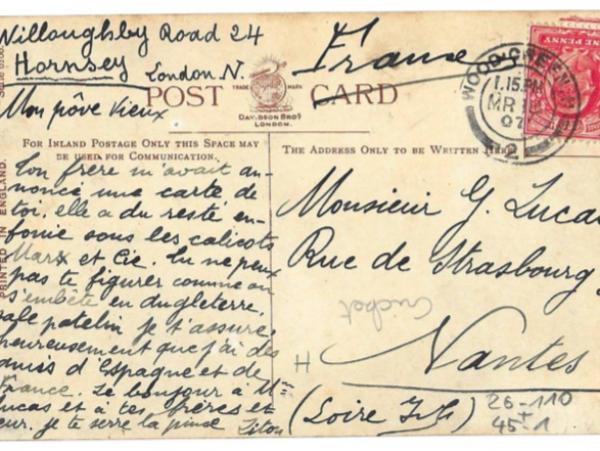 Willoughby Road 24
Hornsey
London N.
France
Mon pôve vieux
POST CARD
TRADE MARK
DAVIDSON BROS
LONDON.
WOOD GREEN
1.15 PM
MR
07
2
ONE PENNY
FOR INLAND POSTAGE ONLY THIS SPACE MAY
BE USED FOR COMMUNICATION.
THE ADDRESS ONLY TO BE WRITTEN HERE
PRINTED IN ENGLAND.
Ton frère m'avait an-
noncé une carte de
toi, elle a du resté en-
fouie sous les calicots
Marx et Cie. Tu ne peux
pas te figurer comme on
s'embête en Angleterre,
sale patelin je t'assure,
heureusement que j'ai des
amis d'Espagne et de
France. Le bonjour à Mme
Lucas et à tes frères et
sœur. je te serre la pince
Monsieur G. Lucas
Rue de Strasbourg
Nantes
(Loire Infre)
H
26-110
45-1